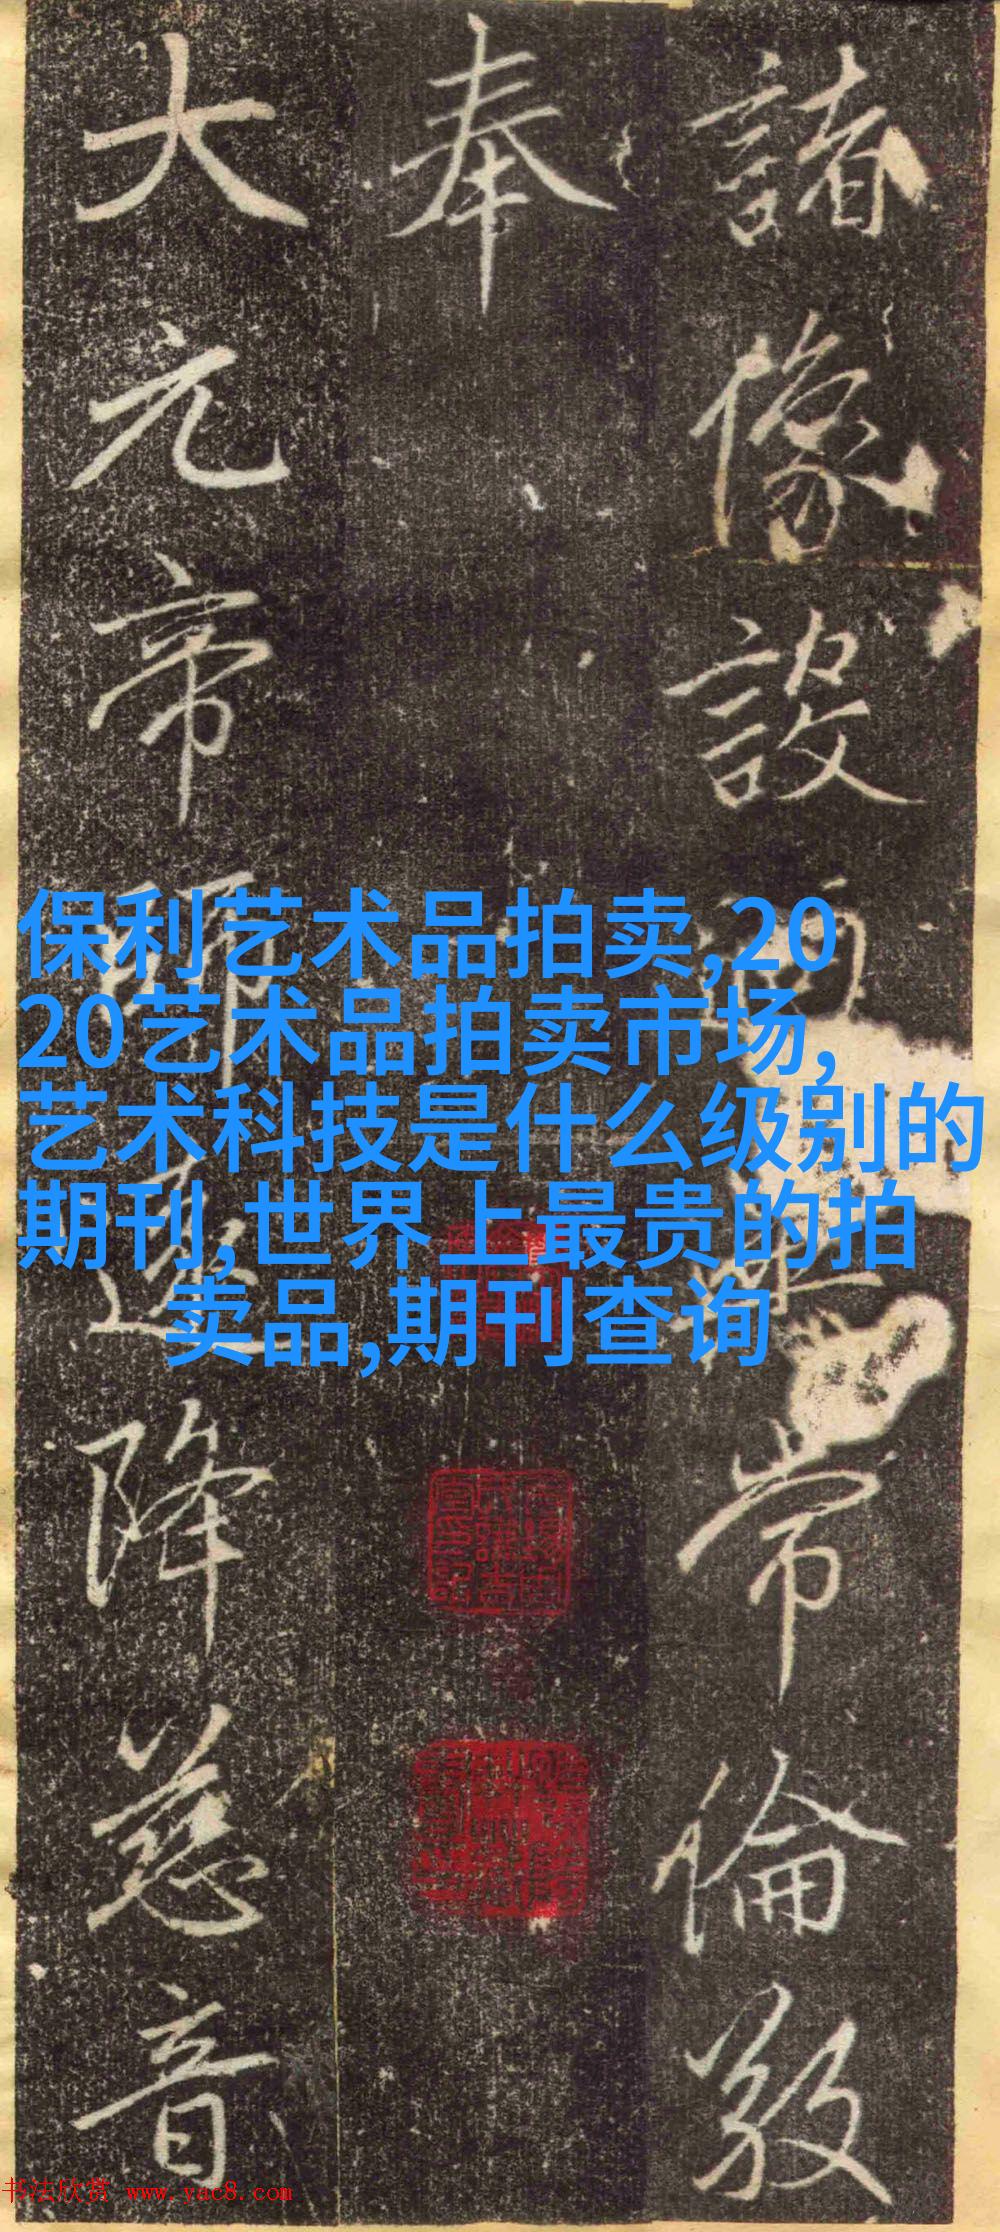 諸像設常倫
奉
大元帝師降慈音
保利艺术品拍卖,20
20艺术品拍卖市场,
艺术科技是什么级别的
期刊,世界上最贵的拍
卖品,期刊查询
书法欣赏 www.yac8.com